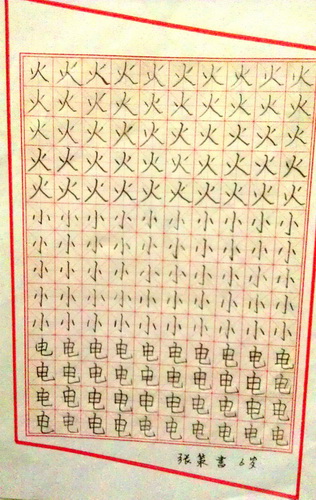 火火火火火火火火火火
火火火火火火火火火火
火火火火火火火火火火
火火火火火火火火火火
火火火火火火火火火火
小小小小小小小小小小
小小小小小小小小小小
小小小小小小小小小小
小小小小小小小小小小
小小小小小小小小小小
电电电电电电电电电电
电电电电电电电电电电
电电电电电电电电电电
电电电电电电电电电电
张策书 6岁